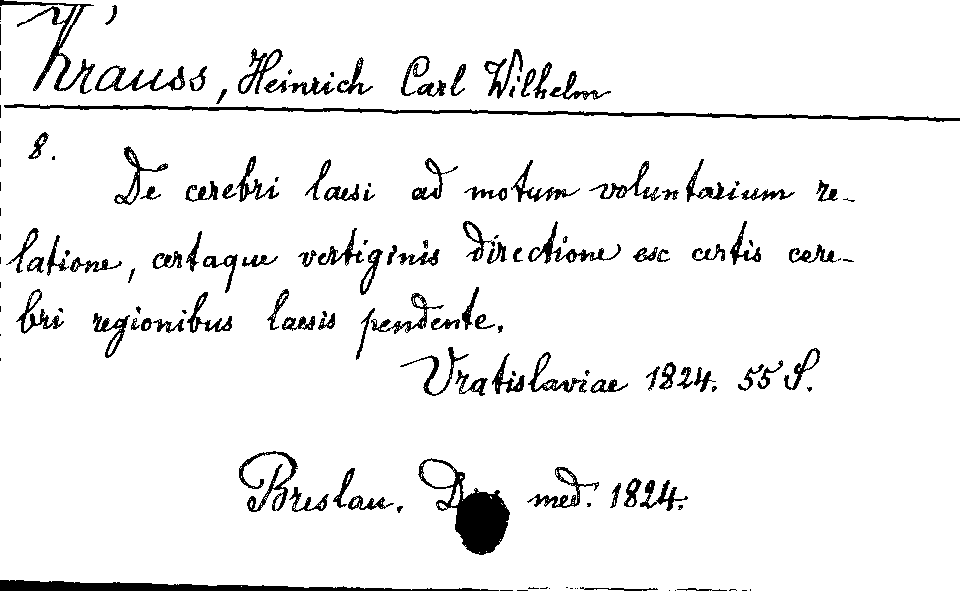 Krauss, Heinrich Carl Wilhelm
8.
De cerebri laesi ad motum voluntarium re-
latione, certaque vertiginis directione ex certis cere-
bri regionibus laesis pendente.
Vratislaviae 1824. 55 S.
Breslau. med. 1824.